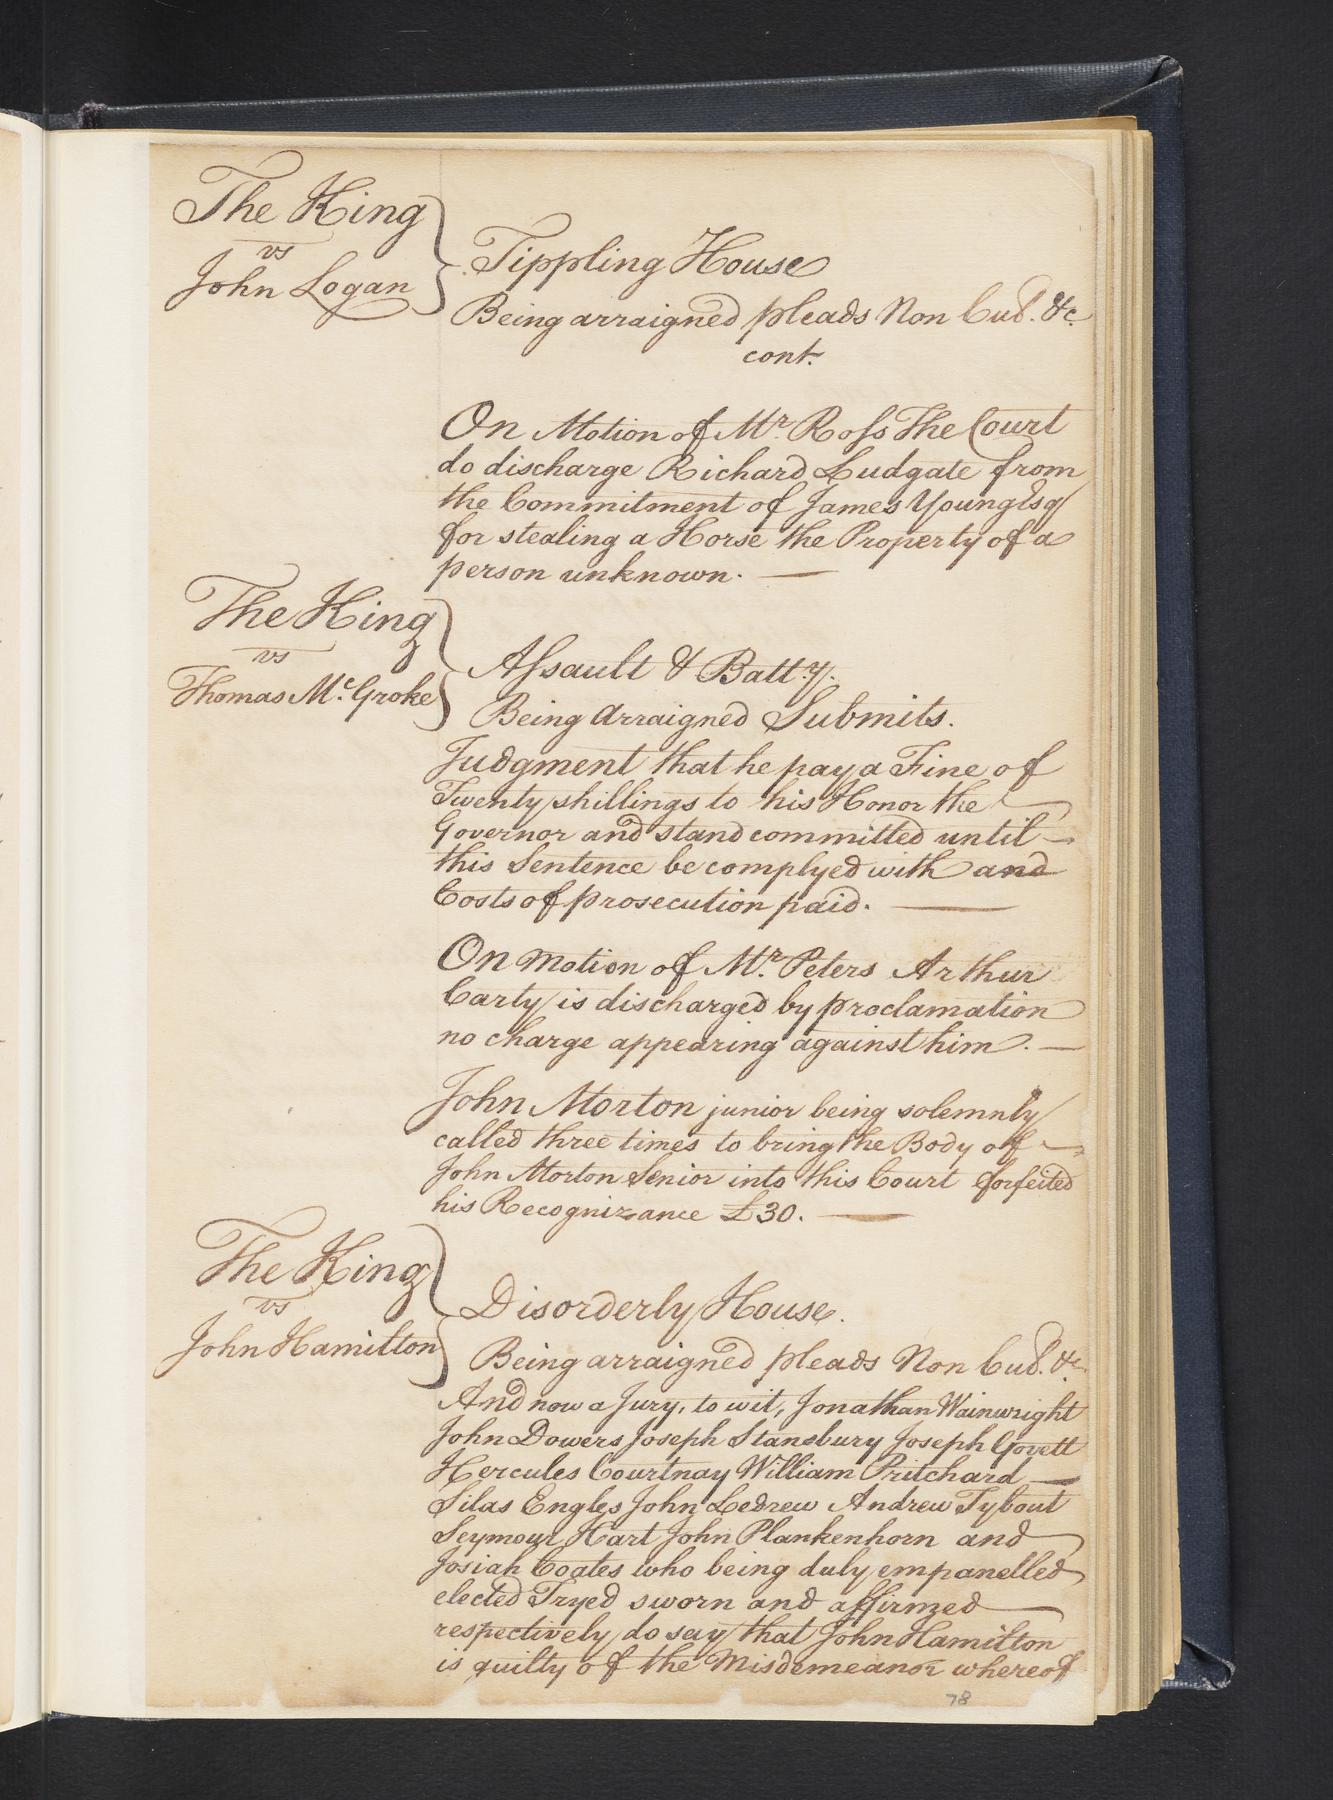 The King
vs
John Logan
Tippling House
Being arraigned pleads Non Cul. &c.
cont.
On Motion of Mr. Ross The Court
do discharge Richard Ludgate from
the Commitment of James Young Esq
for stealing a Horse the Property of a
person unknown. —
The King
vs
Thomas Mc. Groke
Assault & Batt.y.
Being arraigned Submits.
Judgment that he pay a Fine of
Twenty shillings to his Honor the
Governor and stand committed until —
this Sentence be complyed with and
Costs of prosecution paid. —
On motion of Mr. Peters Arthur
Carty is discharged by proclamation
no charge appearing against him. —
John Morton junior being solemnly
called three times to bring the Body of —
John Morton Senior into this Court forfeited
his Recognizance £30. —
The King
vs
John Hamilton
Disorderly House.
Being arraigned pleads Non Cul. &c.
And now a Jury, to wit, Jonathan Wainwright
John Dowers Joseph Stansbury Joseph Govett
Hercules Courtnay William Pritchard —
Silas Engles John Ledrew Andrew Tybout
Seymour Hart John Plankenhorn and
Josiah Coates who being duly empanelled
elected Tryed sworn and affirmed
respectively do say that John Hamilton
is guilty of the Misdemeanor whereof
78